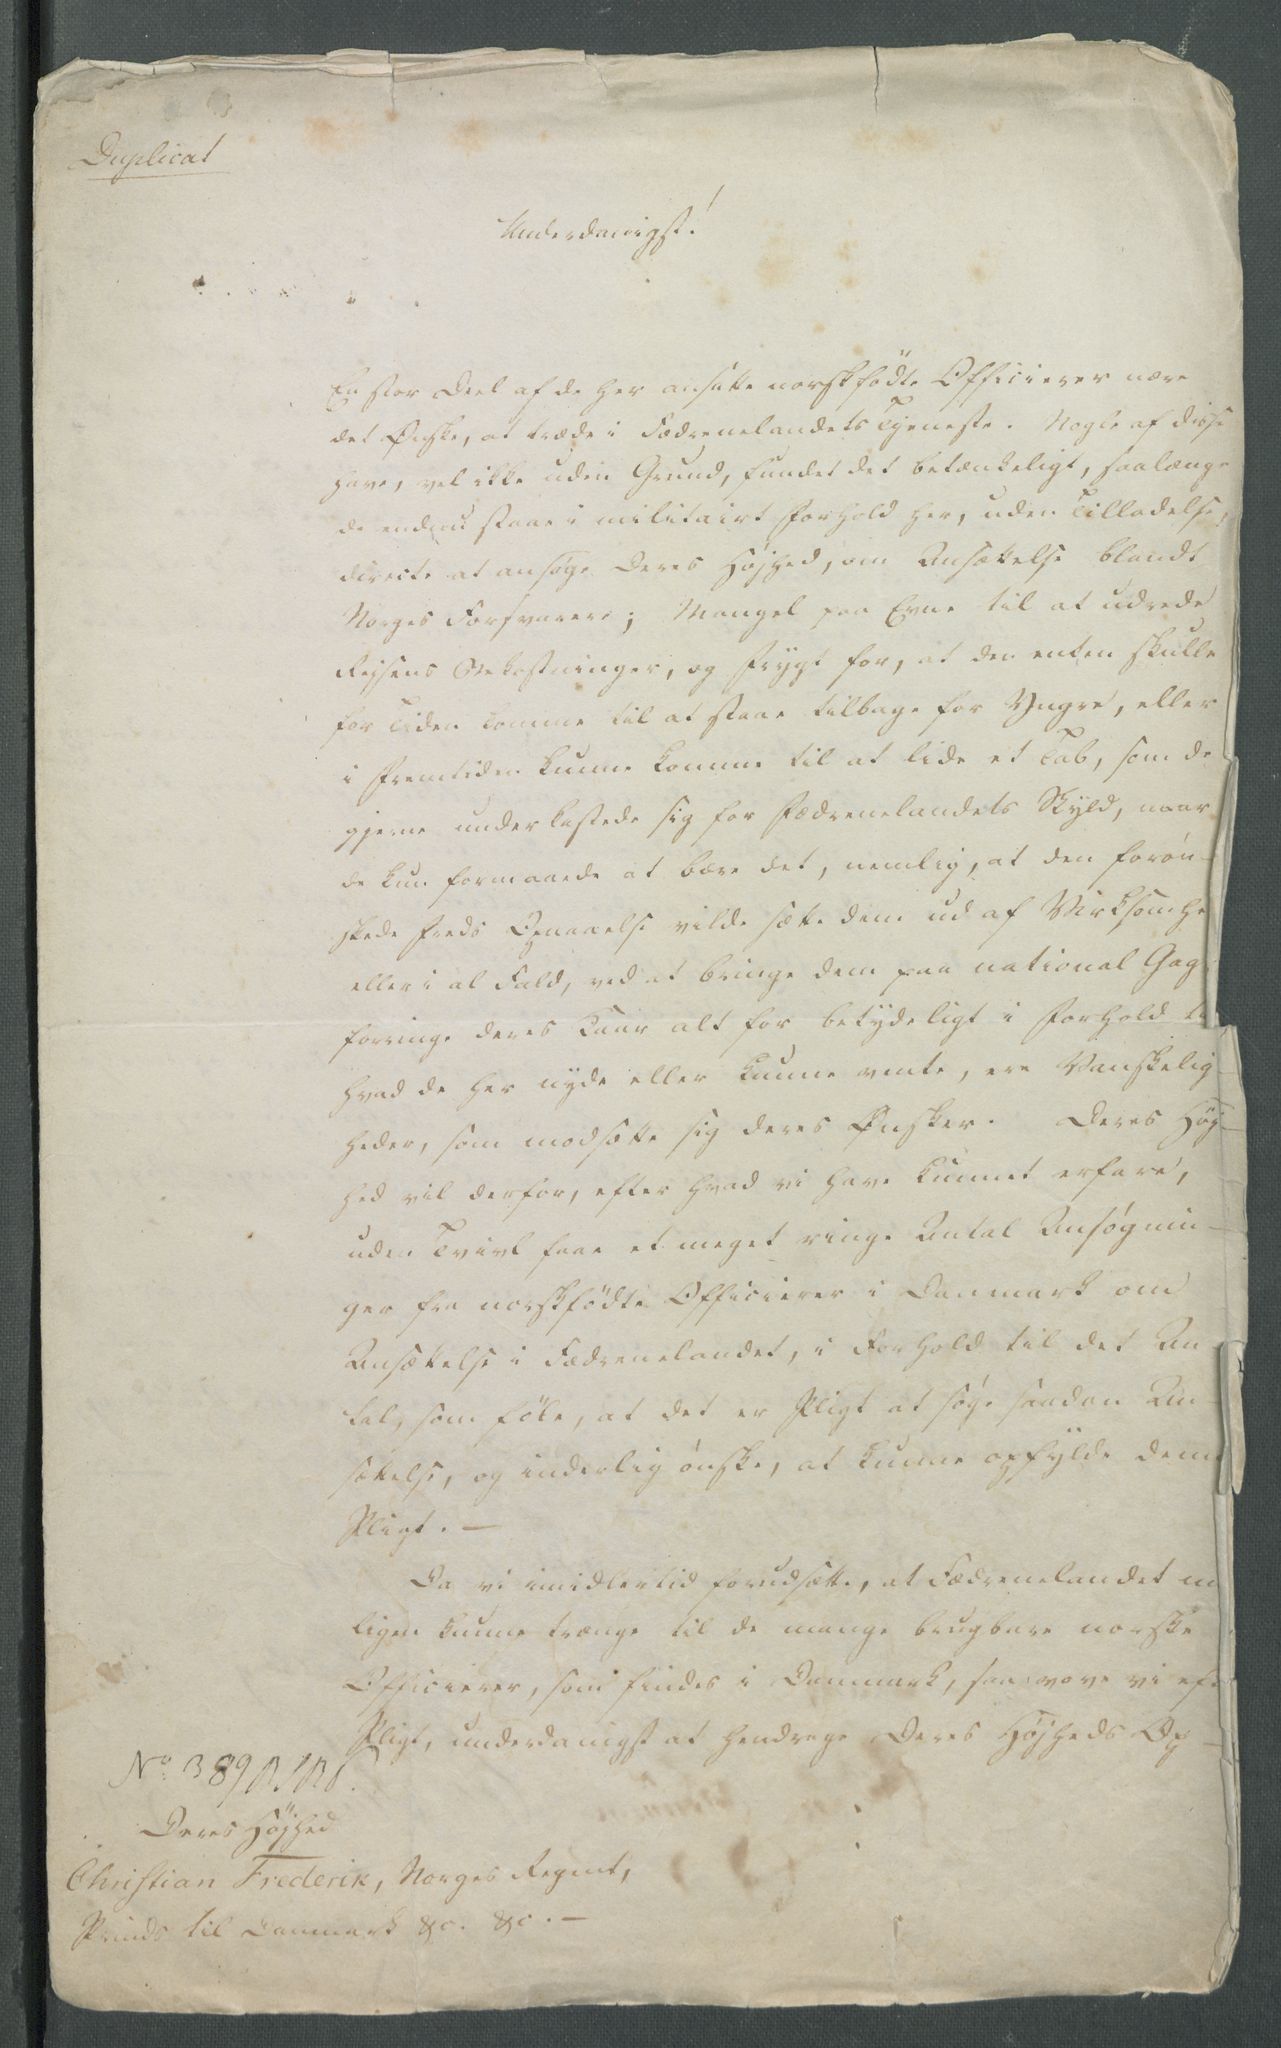 Duplicat
Underdanigst!
En stor Deel af de her ansatte norskfödte Officierer nære
det Ønske, at træde i Fædrenelandets Tjeneste. Nogle af disse
have, vel ikke uden Grund, fundet det betænkeligt, saalænge
de endnu staae i militairt Forhold her, uden Tilladelse,
directe at ansøge Deres Højhed, om Ansættelse blandt
Norges Forsvarere; Mangel paa Evne til at udrede
Rejsens Bekostninger, og Frygt for, at den enten skulle
for Tiden komme til at staae tilbage for Yngre, eller
i Fremtiden kunne komme til at lide et Tab, som de
gjerne underkastede sig for Fædrenelandets Skyld, naar
de kun formaaede at bære det, nemlig, at den forøn-
skede Freds Opnaaelse vilde sætte dem ud af Virksomhe
eller i al Fald, ved at bringe dem paa national Gage
forringe deres Kaar alt for betydeligt i Forhold til
hvad de her nyde eller kunne vente, ere Vanskelig-
heder, som modsætte sig deres Ønsker. Deres Høj-
hed vil derfor, efter hvad vi have kunnet erfare,
uden Tvivl faae et meget ringe Antal Ansøgnin-
ger fra norskfödte Officierer i Danmark om
Ansættelse i Fædrenelandet, i Forhold til det An-
tal, som föle, at det er Pligt at søge saadan An-
sættelse, og inderlig ønske, at kunne opfylde denne
Pligt. —
Da vi imidlertid forudsætte, at Fædrenelandet m
ligen kunne trænge til de mange brugbare norske
Officierer, som findes i Danmark, saa vove vi efter
Pligt, underdanigst at hendrage Deres Højheds Op-
No. 389
Deres Højhed
Christian Frederik, Norges Regent,
Prinds til Danmark &c. &c. —